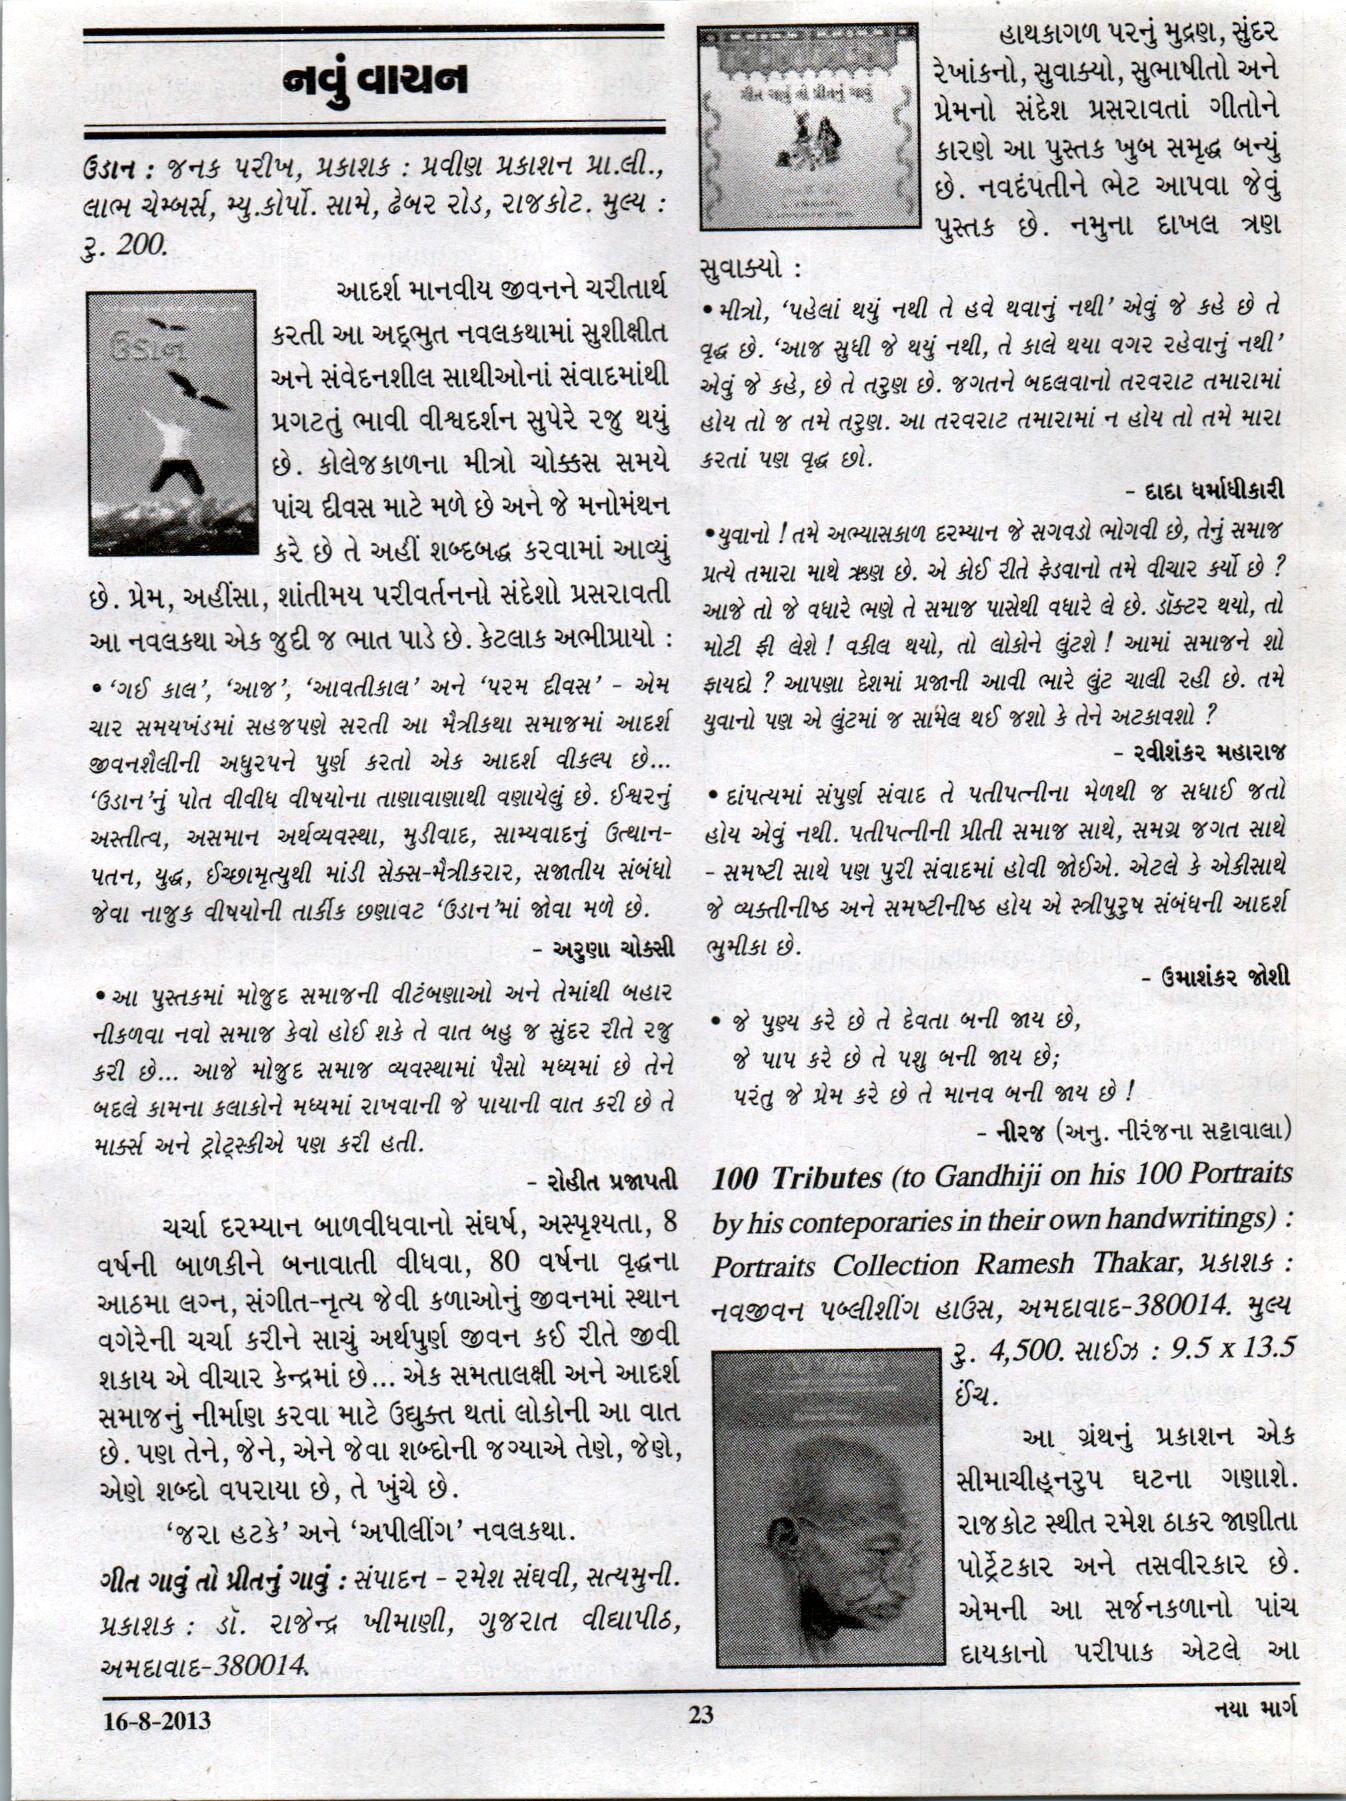 નવું વાચન
ઉડાન : જનક પરીખ, પ્રકાશક : પ્રવીણ પ્રકાશન પ્રા.લી.,
લાભ ચેમ્બર્સ, મ્યુ.કોર્પો. સામે, ઢેબર રોડ, રાજકોટ. મુલ્ય :
રુ. 200.
ઉડાન
આદર્શ માનવીય જીવનને ચરીતાર્થ
કરતી આ અદ્ભુત નવલકથામાં સુશીક્ષીત
અને સંવેદનશીલ સાથીઓનાં સંવાદમાંથી
પ્રગટતું ભાવી વીશ્વદર્શન સુપેરે રજુ થયું
છે. કોલેજકાળના મીત્રો ચોક્કસ સમયે
પાંચ દીવસ માટે મળે છે અને જે મનોમંથન
કરે છે તે અહીં શબ્દબદ્ધ કરવામાં આવ્યું
છે. પ્રેમ, અહીંસા, શાંતીમય પરીવર્તનનો સંદેશો પ્રસરાવતી
આ નવલકથા એક જુદી જ ભાત પાડે છે. કેટલાક અભીપ્રાયો :
• ‘ગઈ કાલ’, ‘આજ’, ‘આવતીકાલ’ અને ‘પરમ દીવસ’ - એમ
ચાર સમયખંડમાં સહજપણે સરતી આ મૈત્રીકથા સમાજમાં આદર્શ
જીવનશૈલીની અધુરપને પુર્ણ કરતો એક આદર્શ વીકલ્પ છે...
‘ઉડાન’નું પોત વીવીધ વીષયોના તાણાવાણાથી વણાયેલું છે. ઈશ્વરનું
અસ્તીત્વ, અસમાન અર્થવ્યવસ્થા, મુડીવાદ, સામ્યવાદનું ઉત્થાન-
પતન, યુદ્ધ, ઈચ્છામૃત્યુથી માંડી સેક્સ-મૈત્રીકરાર, સજાતીય સંબંધો
જેવા નાજુક વીષયોની તાર્કીક છણાવટ ‘ઉડાન’માં જોવા મળે છે.
- અરુણા ચોક્સી
• આ પુસ્તકમાં મોજુદ સમાજની વીટંબણાઓ અને તેમાંથી બહાર
નીકળવા નવો સમાજ કેવો હોઈ શકે તે વાત બહુ જ સુંદર રીતે રજુ
કરી છે... આજે મોજુદ સમાજ વ્યવસ્થામાં પૈસો મધ્યમાં છે તેને
બદલે કામના કલાકોને મધ્યમાં રાખવાની જે પાયાની વાત કરી છે તે
માર્ક્સ અને ટ્રોટ્સ્કીએ પણ કરી હતી.
- રોહીત પ્રજાપતી
ચર્ચા દરમ્યાન બાળવીધવાનો સંઘર્ષ, અસ્પૃશ્યતા, 8
વર્ષની બાળકીને બનાવાતી વીધવા, 80 વર્ષના વૃદ્ધના
આઠમા લગ્ન, સંગીત-નૃત્ય જેવી કળાઓનું જીવનમાં સ્થાન
વગેરેની ચર્ચા કરીને સાચું અર્થપુર્ણ જીવન કઈ રીતે જીવી
શકાય એ વીચાર કેન્દ્રમાં છે... એક સમતાલક્ષી અને આદર્શ
સમાજનું નીર્માણ કરવા માટે ઉદ્યુક્ત થતાં લોકોની આ વાત
છે. પણ તેને, જેને, એને જેવા શબ્દોની જગ્યાએ તેણે, જેણે,
એણે શબ્દો વપરાયા છે, તે ખુંચે છે.
‘જરા હટકે’ અને ‘અપીલીંગ’ નવલકથા.
ગીત ગાવું તો પ્રીતનું ગાવું : સંપાદન - રમેશ સંઘવી, સત્યમુની.
પ્રકાશક : ડૉ. રાજેન્દ્ર ખીમાણી, ગુજરાત વીદ્યાપીઠ,
અમદાવાદ-380014.
ગીત ગાવું તો પ્રીતનું ગાવું
હાથકાગળ પરનું મુદ્રણ, સુંદર
રેખાંકનો, સુવાક્યો, સુભાષીતો અને
પ્રેમનો સંદેશ પ્રસરાવતાં ગીતોને
કારણે આ પુસ્તક ખુબ સમૃદ્ધ બન્યું
છે. નવદંપતીને ભેટ આપવા જેવું
પુસ્તક છે. નમુના દાખલ ત્રણ
સુવાક્યો :
• મીત્રો, ‘પહેલાં થયું નથી તે હવે થવાનું નથી’ એવું જે કહે છે તે
વૃદ્ધ છે. ‘આજ સુધી જે થયું નથી, તે કાલે થયા વગર રહેવાનું નથી’
એવું જે કહે, છે તે તરુણ છે. જગતને બદલવાનો તરવરાટ તમારામાં
હોય તો જ તમે તરુણ. આ તરવરાટ તમારામાં ન હોય તો તમે મારા
કરતાં પણ વૃદ્ધ છો.
- દાદા ધર્માધીકારી
• યુવાનો ! તમે અભ્યાસકાળ દરમ્યાન જે સગવડો ભોગવી છે, તેનું સમાજ
પ્રત્યે તમારા માથે ઋણ છે. એ કોઈ રીતે ફેડવાનો તમે વીચાર કર્યો છે ?
આજે તો જે વધારે ભણે તે સમાજ પાસેથી વધારે લે છે. ડૉક્ટર થયો, તો
મોટી ફી લેશે ! વકીલ થયો, તો લોકોને લુંટશે ! આમાં સમાજને શો
ફાયદો ? આપણા દેશમાં પ્રજાની આવી ભારે લુંટ ચાલી રહી છે. તમે
યુવાનો પણ એ લુંટમાં જ સામેલ થઈ જશો કે તેને અટકાવશો ?
- રવીશંકર મહારાજ
• દાંપત્યમાં સંપુર્ણ સંવાદ તે પતીપત્નીના મેળથી જ સધાઈ જતો
હોય એવું નથી. પતીપત્નીની પ્રીતી સમાજ સાથે, સમગ્ર જગત સાથે
- સમષ્ટી સાથે પણ પુરી સંવાદમાં હોવી જોઈએ. એટલે કે એકીસાથે
જે વ્યક્તીનીષ્ઠ અને સમષ્ટીનીષ્ઠ હોય એ સ્ત્રીપુરુષ સંબંધની આદર્શ
ભુમીકા છે.
- ઉમાશંકર જોશી
• જે પુણ્ય કરે છે તે દેવતા બની જાય છે,
જે પાપ કરે છે તે પશુ બની જાય છે;
પરંતુ જે પ્રેમ કરે છે તે માનવ બની જાય છે !
- નીરજ (અનુ. નીરંજના સટ્ટાવાલા)
100 Tributes (to Gandhiji on his 100 Portraits
by his conteporaries in their own handwritings) :
Portraits Collection Ramesh Thakar, પ્રકાશક :
નવજીવન પબ્લીશીંગ હાઉસ, અમદાવાદ-380014. મુલ્ય
રુ. 4,500. સાઈઝ : 9.5 x 13.5
ઈંચ.
આ ગ્રંથનું પ્રકાશન એક
સીમાચીહ્નરુપ ઘટના ગણાશે.
રાજકોટ સ્થીત રમેશ ઠાકર જાણીતા
પોર્ટ્રેટકાર અને તસવીરકાર છે.
એમની આ સર્જનકળાનો પાંચ
દાયકાનો પરીપાક એટલે આ
16-8-2013
23
નયા માર્ગ